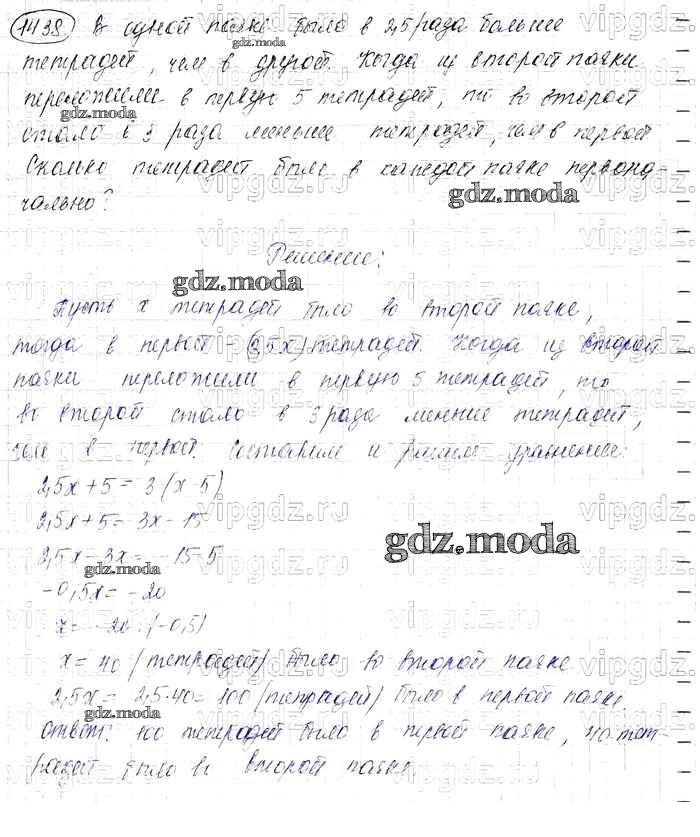 1438 В одной пачке было в 2,5 раза больше
gdz.moda
тетрадей, чем в другой. Когда из второй пачки
переложили в первую 5 тетрадей, то во второй
gdz.moda
стало в 3 раза меньше тетрадей, чем в первой
Сколько тетрадей было в каждой пачке первона-
gdz.moda
чально?
Решение:
gdz.moda
Пусть x тетрадей было во второй пачке,
тогда в первой - (2,5x) тетрадей. Когда из второй
пачки переложили в первую 5 тетрадей, то
во второй стало в 3 раза меньше тетрадей,
чем в первой. Составим и решим уравнение:
2,5x + 5 = 3 (x - 5)
2,5x + 5 = 3x - 15
gdz.moda
2,5x - 3x = -15-5
gdz.moda
-0,5x = -20
x = -20 : (-0,5)
x = 40 (тетрадей) было во второй пачке
2,5x = 2,5·40 = 100 (тетрадей) было в первой пачке.
gdz.moda
Ответ: 100 тетрадей было в первой пачке, 40 тет-
радей было во второй пачке.
vipgdz.ru